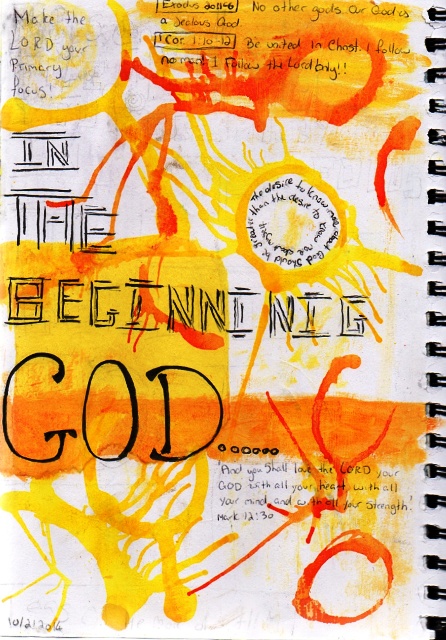 Make the
LORD your
Primary
focus!
Exodus 20:1-6 No other gods. Our God is
a Jealous God.
1 Cor 1:10-12 Be united in Christ. I follow
no man! I Follow the Lord only!!
The desire to know more about God should be greater than the desire to know
IN
THE
BEGINNINIG
GOD.......
"And you shall love the LORD your
GOD with all your heart, with all
your mind, and with all your strength."
Mark 12:30
10/2/2014